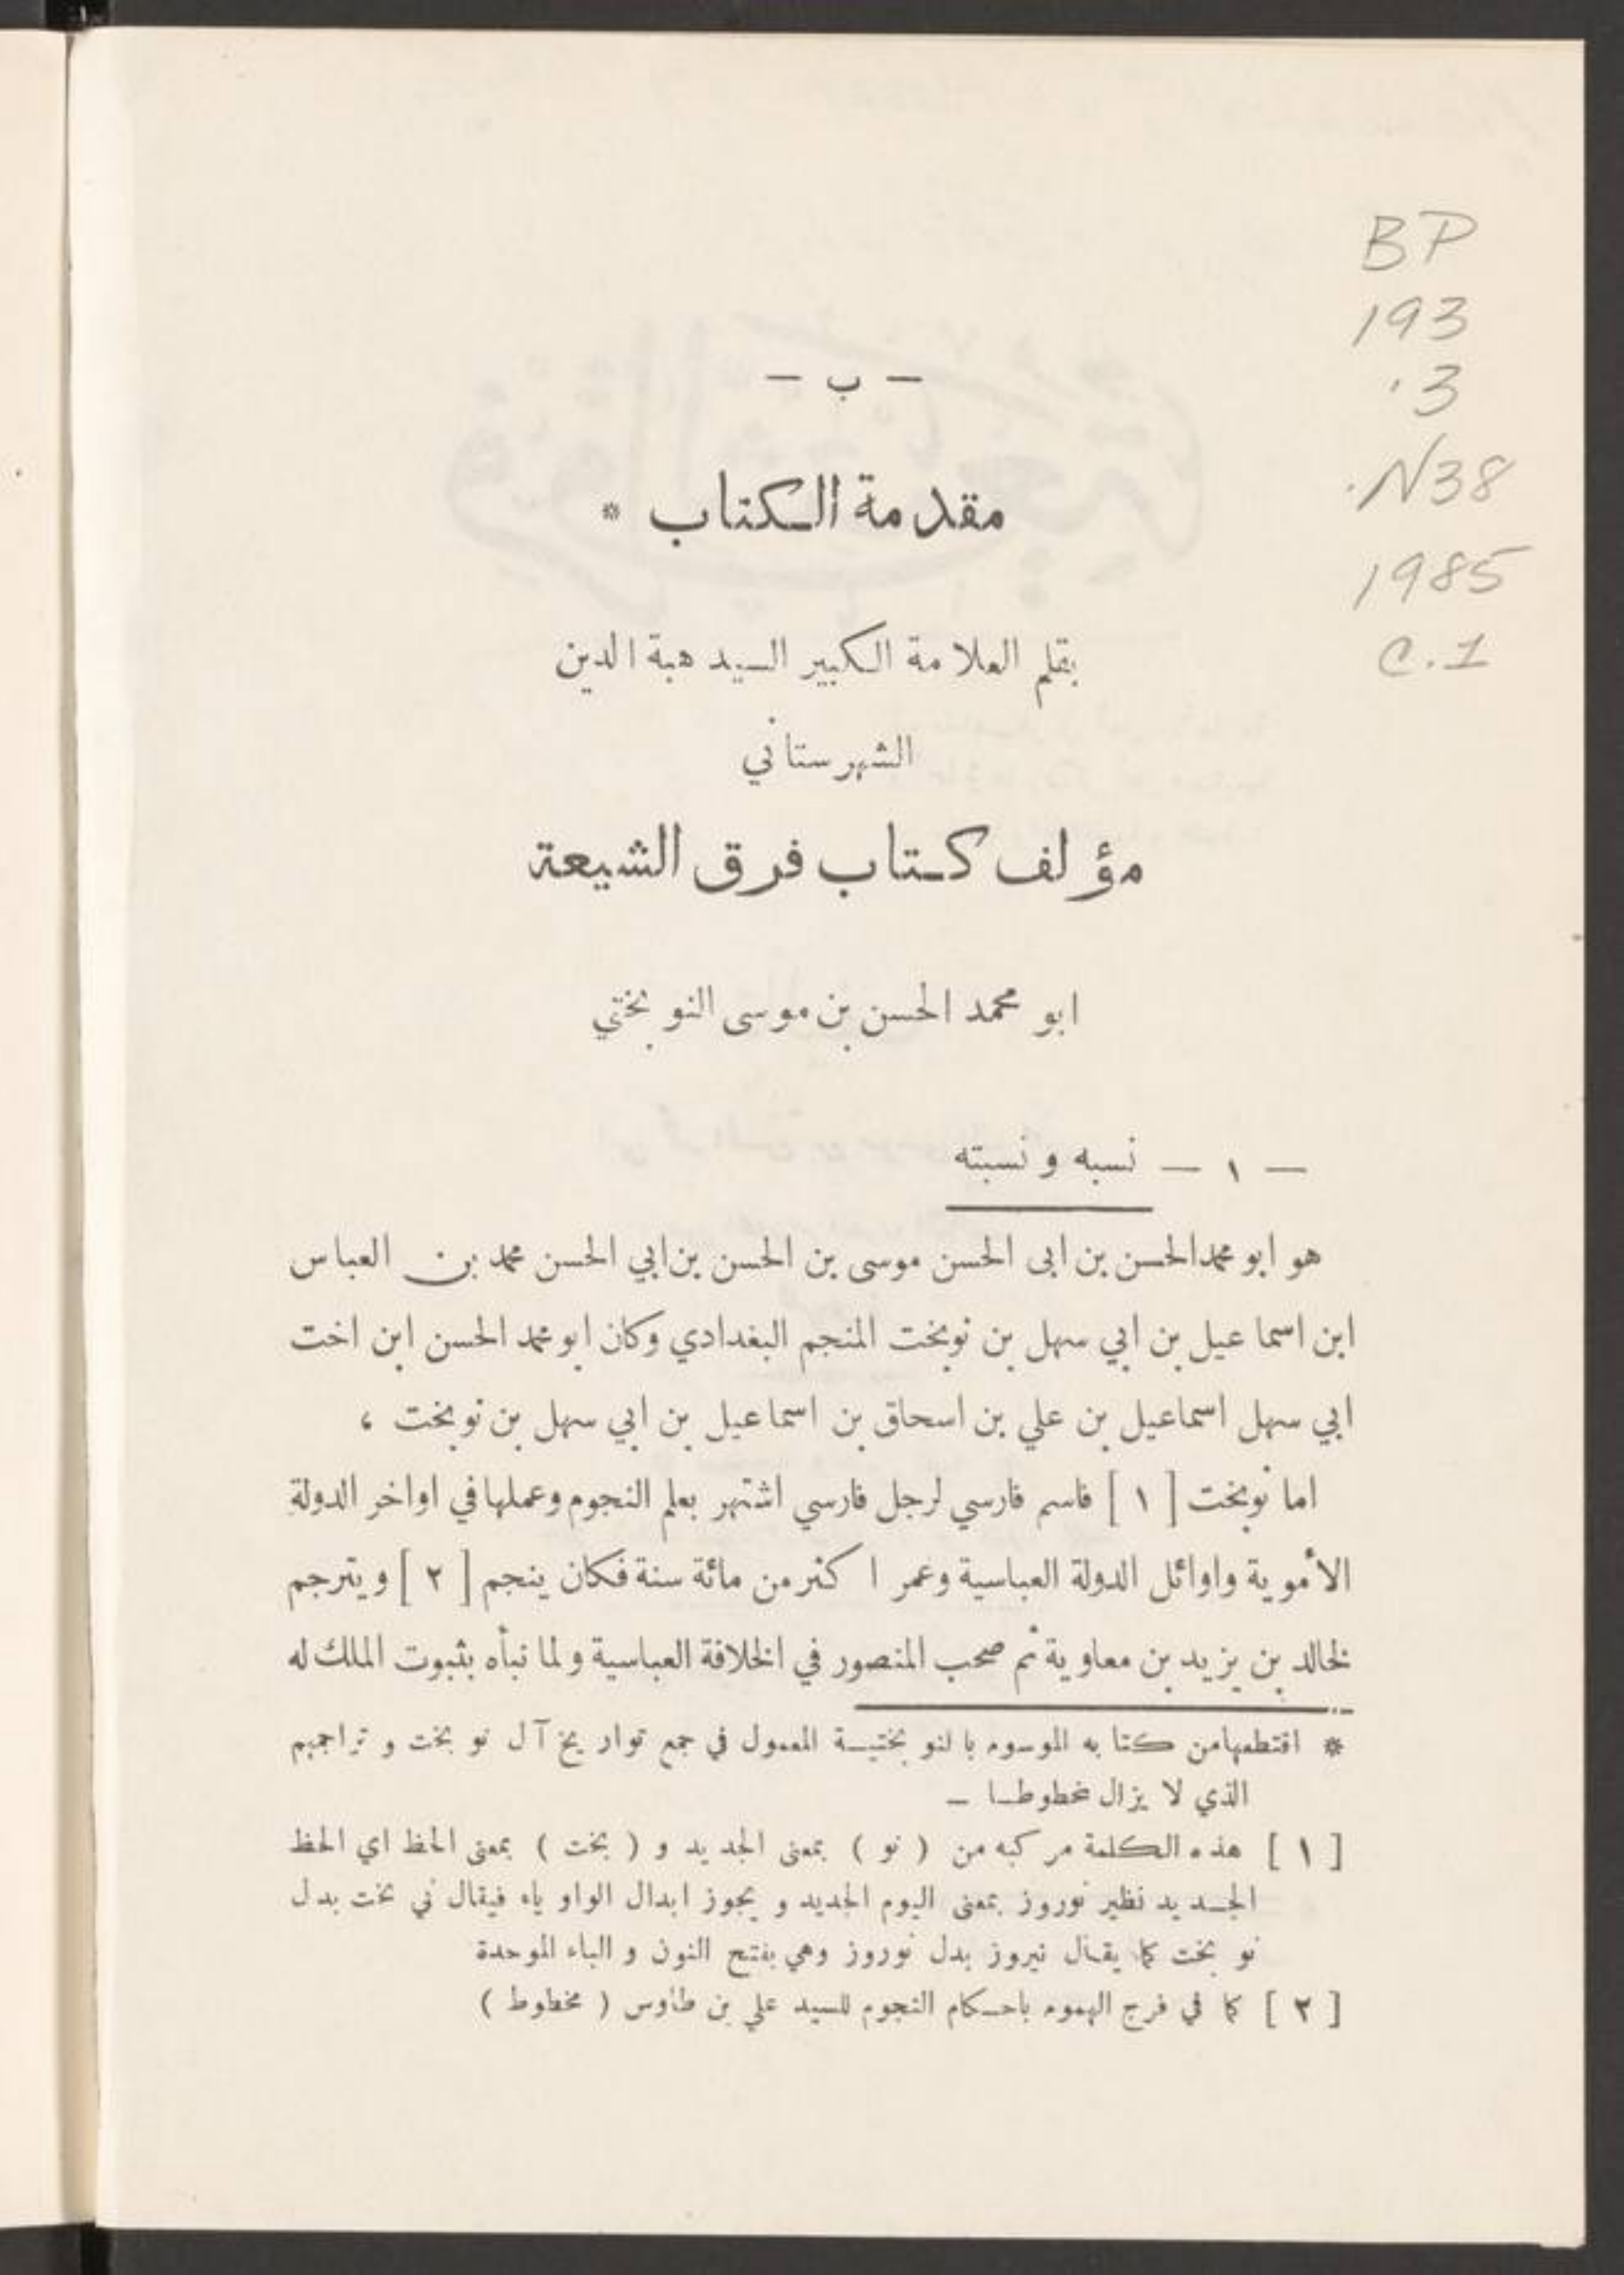 BP
193
.3
.N38
1985
C.1
— ب —
مقدمة الكتاب *
بقلم العلامة الكبير السيد هبة الدين
الشهرستاني
مؤلف كتاب فرق الشيعة
ابو محمد الحسن بن موسى النوبختي
— ١ — نسبه ونسبته
هو ابو محمد الحسن بن ابى الحسن موسى بن الحسن بن ابي الحسن محمد بن العباس
ابن اسماعيل بن ابي سهل بن نوبخت المنجم البغدادي وكان ابو محمد الحسن ابن اخت
ابي سهل اسماعيل بن علي بن اسحاق بن اسماعيل بن ابي سهل بن نوبخت ،
اما نوبخت [ ١ ] فاسم فارسي لرجل فارسي اشتهر بعلم النجوم وعملها في اواخر الدولة
الأموية واوائل الدولة العباسية وعمر اكثر من مائة سنة فكان ينجم [ ٢ ] ويترجم
لخالد بن يزيد بن معاوية ثم صحب المنصور في الخلافة العباسية ولما نبأه بثبوت الملك له
* اقتطعها من كتابه الموسوم بالنوبختية المعمول في جمع تواريخ آل نوبخت وتراجمهم
الذي لا يزال مخطوطا —
[ ١ ] هذه الكلمة مركبه من ( نو ) بمعنى الجديد و ( بخت ) بمعنى الحظ اي الحظ
الجديد نظير نوروز بمعنى اليوم الجديد و يجوز ابدال الواو ياء فيقال ني بخت بدل
نو بخت كما يقال نيروز بدل نوروز وهي بفتح النون و الباء الموحدة
[ ٢ ] كما في فرج الهموم باحكام النجوم للسيد علي بن طاوس ( مخطوط )